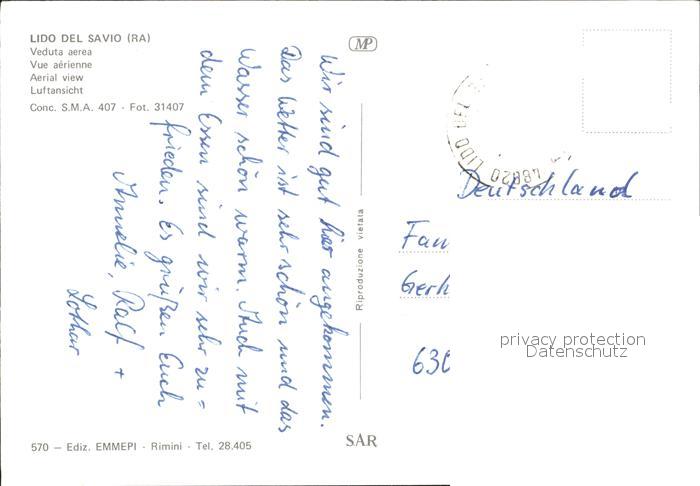 LIDO DEL SAVIO (RA)
Veduta aerea
Vue aérienne
Aerial view
Luftansicht
Conc. S.M.A. 407 - Fot. 31407
MP
Wir sind gut hier angekommen.
Das Wetter ist sehr schön und das
Wasser schön warm. Auch mit
dem Essen sind wir sehr zu=
frieden. Es grüßen Euch
Annelie, Ralf +
Lothar
Riproduzione vietata
48020 LIDO
Deutschland
Fam
Gerh
630
privacy protection
Datenschutz
570 — Ediz. EMMEPI - Rimini - Tel. 28.405
SAR